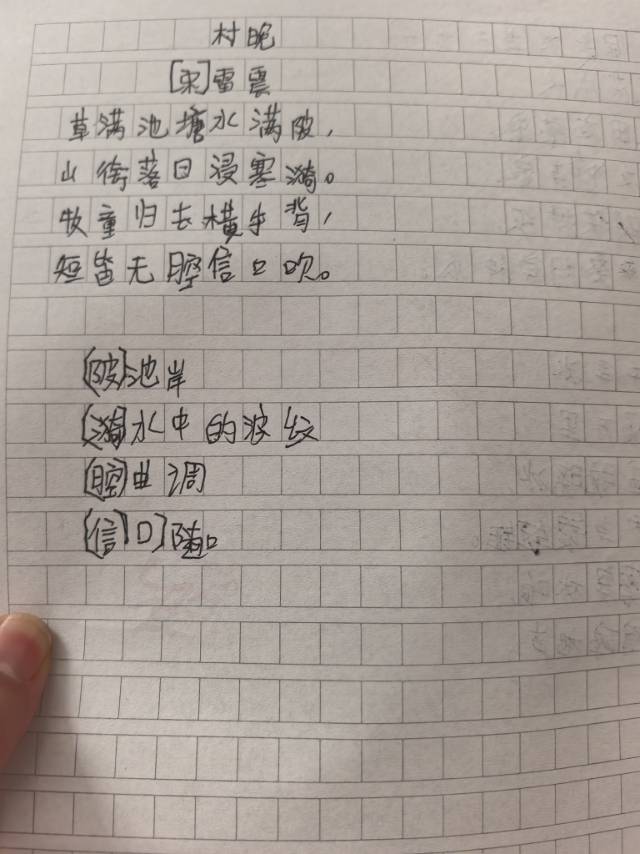 村晚
[宋]雷震
草满池塘水满陂,
山衔落日浸寒漪。
牧童归去横牛背,
短笛无腔信口吹。
[陂]池岸
[漪]水中的波纹
[腔]曲调
[信口]随口